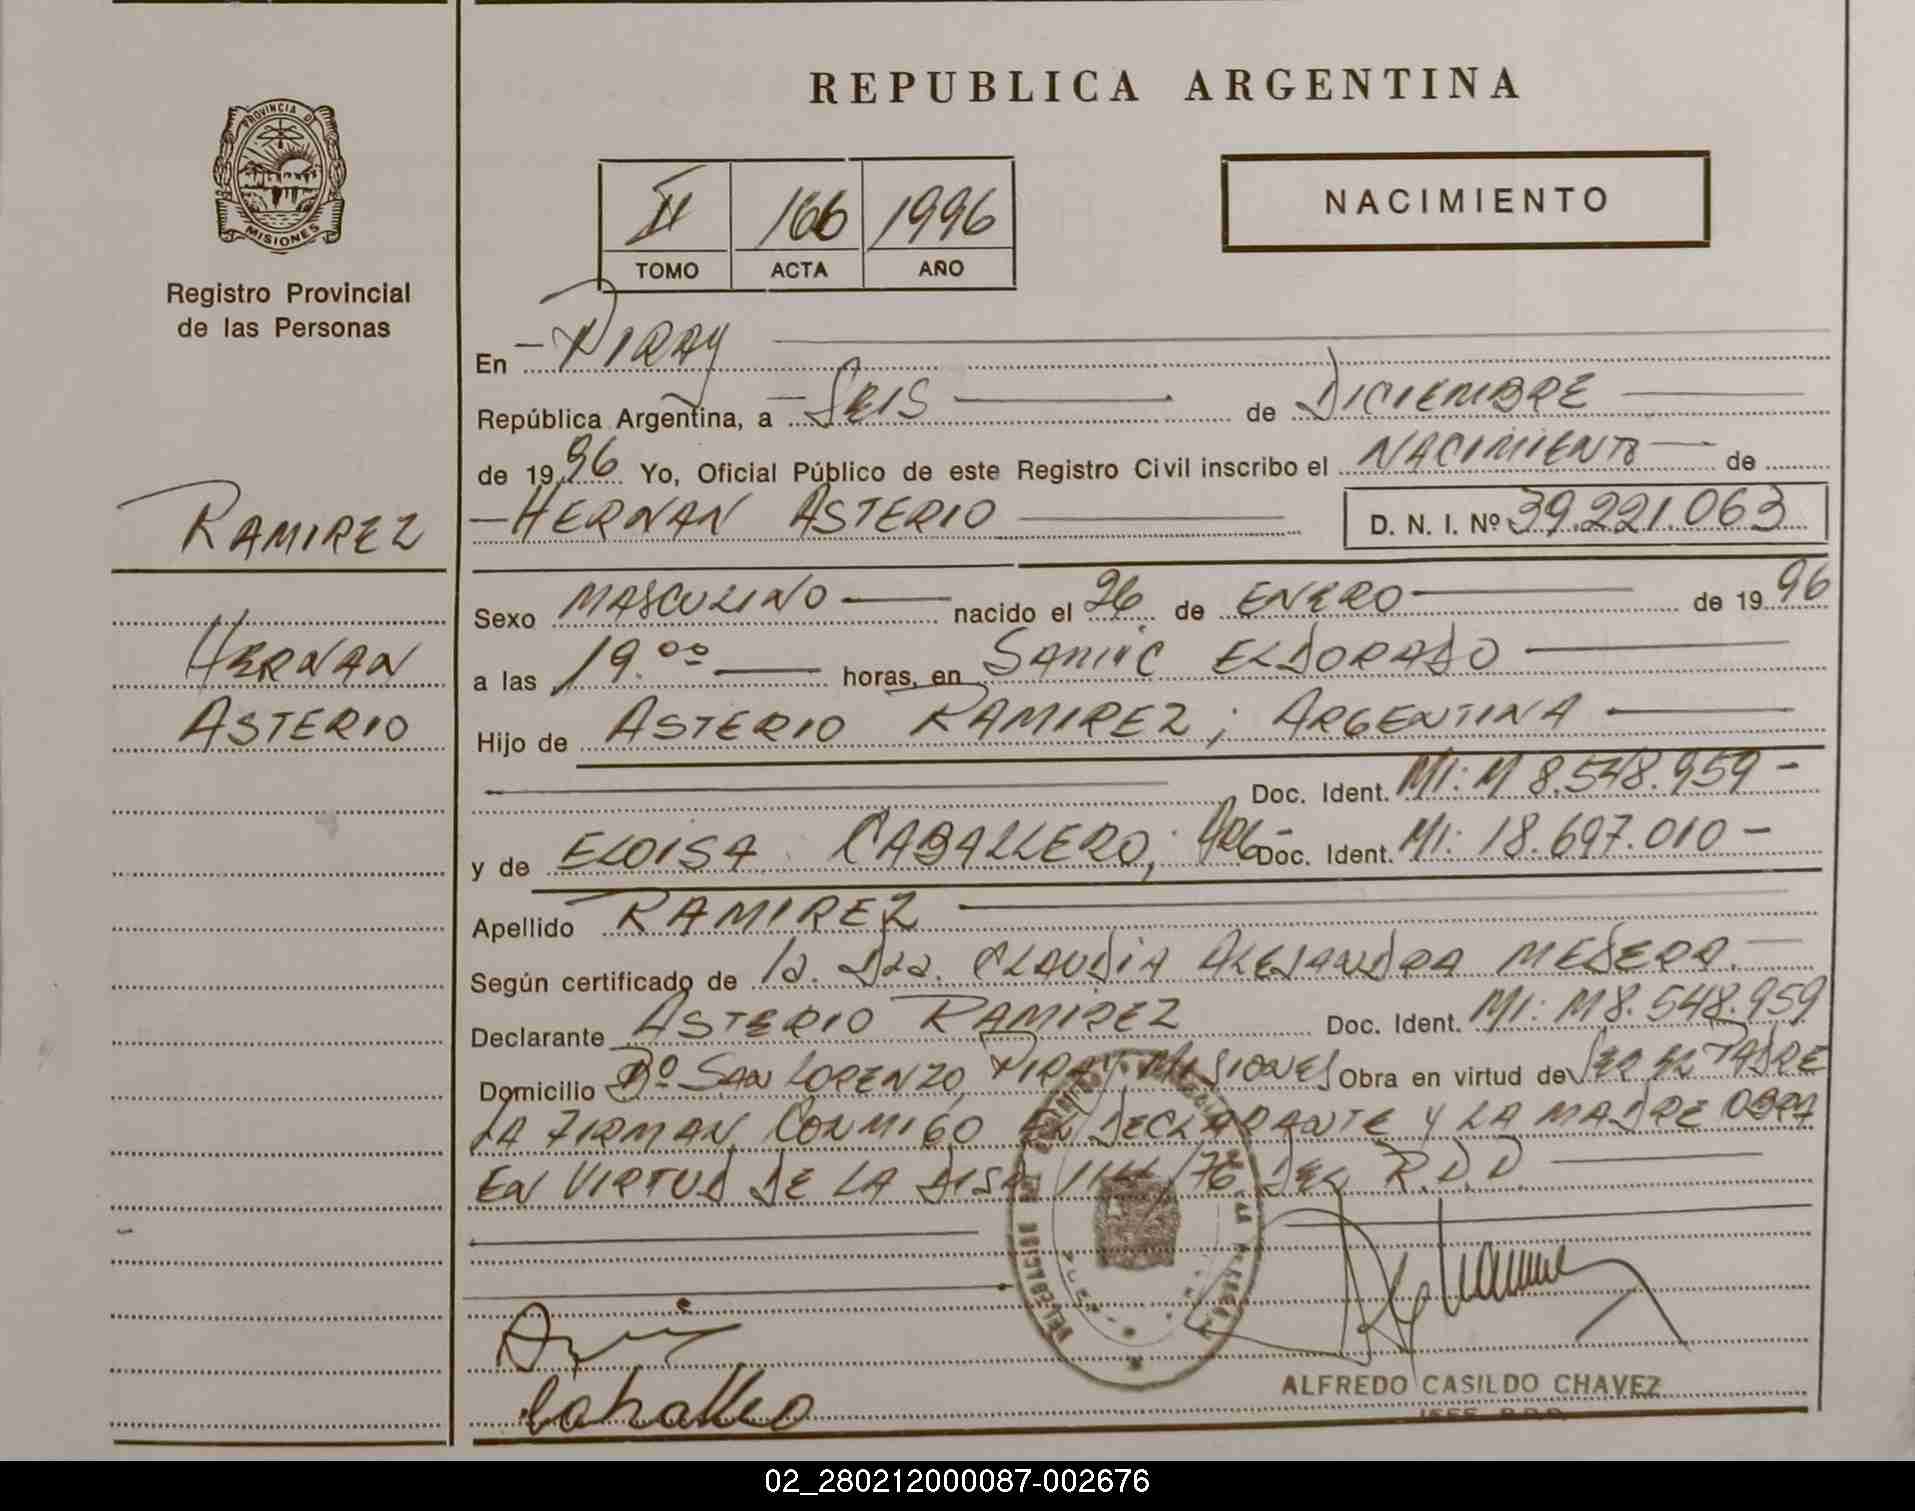 REPUBLICA ARGENTINA
PROVINCIA DE
MISIONES
Registro Provincial
de las Personas
II 166 1996
TOMO ACTA AÑO
NACIMIENTO
En PIRAY
República Argentina, a SEIS de DICIEMBRE
de 1996 Yo, Oficial Público de este Registro Civil inscribo el NACIMIENTO de
RAMIREZ
HERNAN ASTERIO D. N. I. Nº 39.221.063
Sexo MASCULINO nacido el 26 de ENERO de 1996
HERNAN
a las 19.00 horas, en SAMIC ELDORADO
ASTERIO
Hijo de ASTERIO RAMIREZ; ARGENTINA
Doc. Ident. MI: M 8.548.959 -
y de ELOISA CABALLERO; ARG- Doc. Ident. MI: 18.697.010 -
Apellido RAMIREZ
Según certificado de la. Dra. CLAUDIA ALEJANDRA MEDERA.
Declarante ASTERIO RAMIREZ Doc. Ident. MI: M8.548.959
Domicilio Bº SAN LORENZO, PIRAY MISIONES Obra en virtud de SER EL PADRE
LA FIRMAN CONMIGO EL DECLARANTE Y LA MADRE OBRA
EN VIRTUD DE LA DISP. /76 DEL R.D.P.
Caballero
ALFREDO CASILDO CHAVEZ
JEFE R.D.P.
02_280212000087-002676